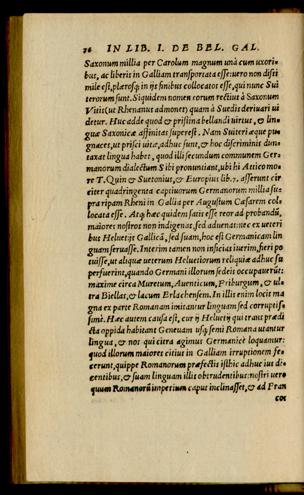 36 IN LIB. I. DE BEL. GAL.
Saxonum millia per Carolum magnum unà cum uxori-
bus, ac liberis in Galliam transportata esse: uero non dissi
mile est, plærosq; in ijs finibus collocatos esse, qui nunc Sui
terorum sunt. Siquidem nomen eorum rectius à Saxonum
Vitis (ut Rhenanus admonet) quàm à Suedis deriuari ui
detur. Huc adde quod & pristina bellandi uirtus, & lin
guæ Saxonicæ affinitas superest. Nam Suiteri æque pu
gnaces, ut prisci uitæ, adhuc sunt, & hoc discriminis dun-
taxat lingua habet, quod illi secundum communem Ger-
manorum dialectum Si bi pronunciant, ubi hi Attico mo-
re T. Quin & Suetonius, & Eutropius lib. 7. asserunt cir
citer quadringenta captiuorum Germanorum millia su-
pra ripam Rheni in Gallia per Augustum Cæsarem col-
locata esse. Atq; hæc quidem satis esse reor ad probandū,
maiores nostros non indigenas, sed aduenas: nec ex ueteri
bus Heluetijs Gallicā, sed suam, hoc est Germanicam lin
guam seruasse. Interim tamen non inficias iuerim, fieri po
tuisse, ut aliquæ ueterum Heluetiorum reliquiæ adhuc su
perfuerint, quando Germani illorum sedeis occupauerūt:
maxime circa Muretum, Auenticum, Friburgum, & ul-
tra Biellas, & lacum Erlachensem. In illis enim locis ma
gna ex parte Romanam imitantur linguam sed corruptis-
simā. Hæc autem causa est, cur ij Heluetij qui trans prædi
cta oppida habitant Geneuam usq; semi Romana utantur
lingua, & nos qui citra agimus Germanicè loquamur:
quod illorum maiores citius in Galliam irruptionem fe-
cerunt, quippe Romanorum præfectis isthic adhuc ius di-
centibus, & suam linguam illis obtrudentibus: nostri uero
quum Romanorū imperium caput inclinasset, & ad Fran
cos